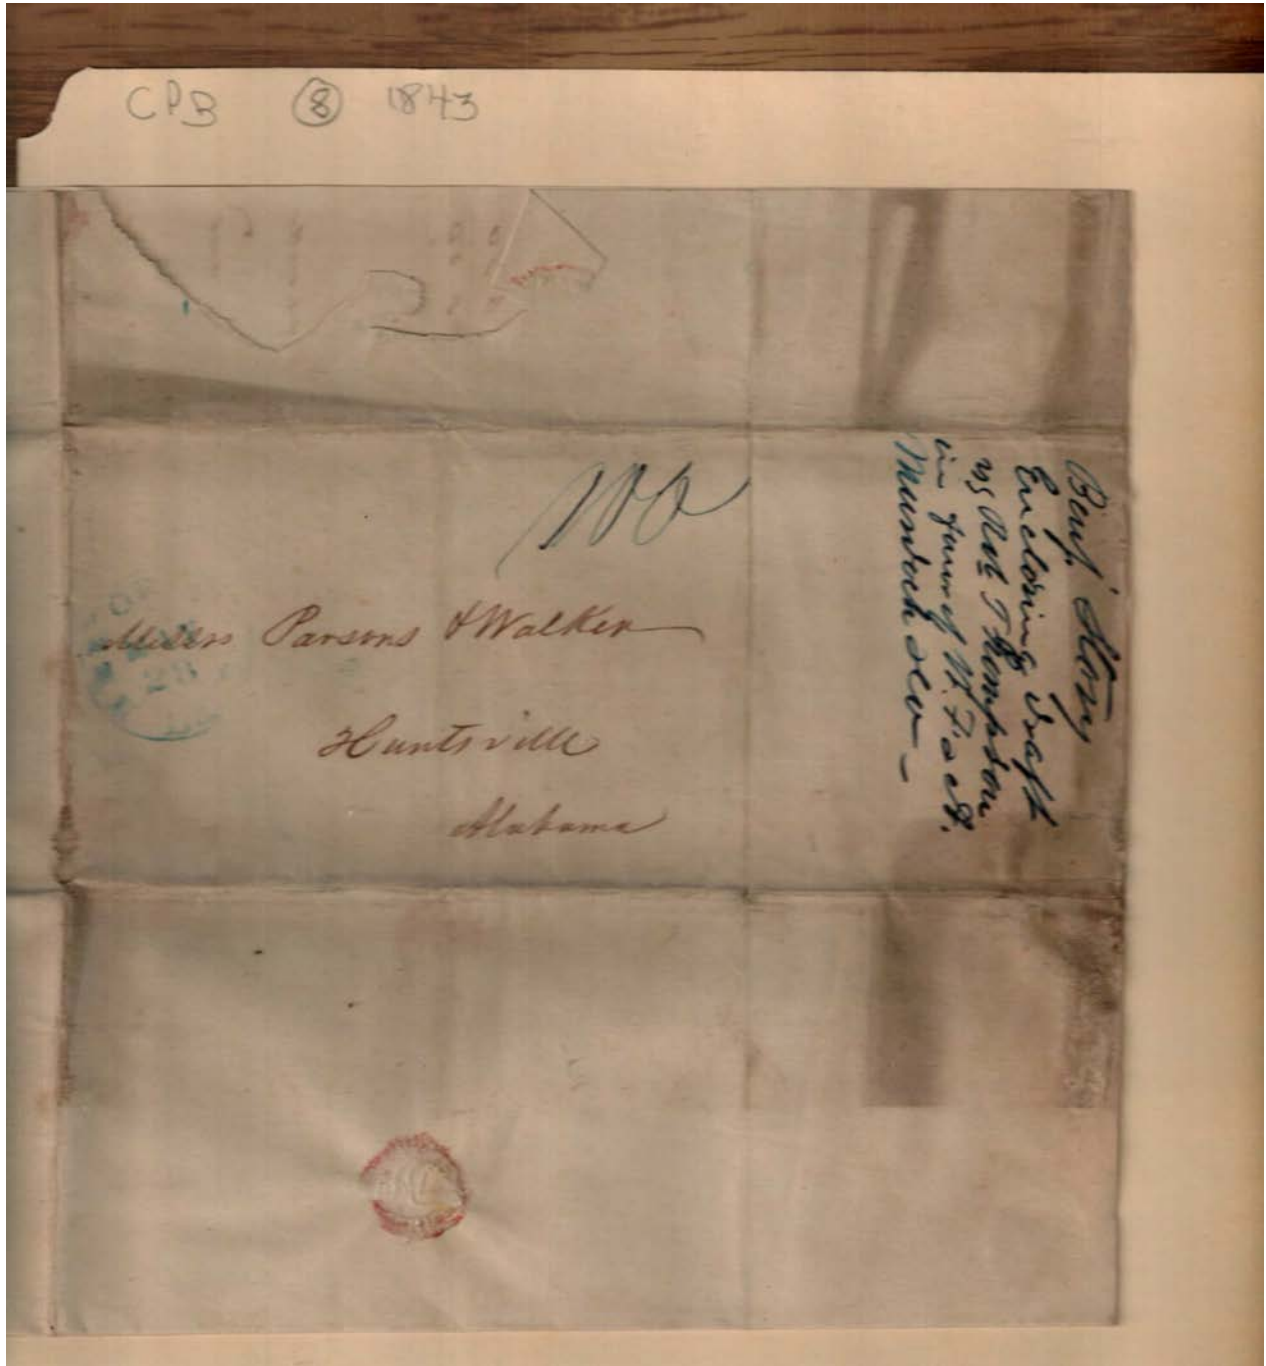 CPB 8 1843
Messrs Parsons & Walker
Huntsville
Alabama
Benj. Story
Enclosing draft
vs Thompson
in favor of
Murdoch
28